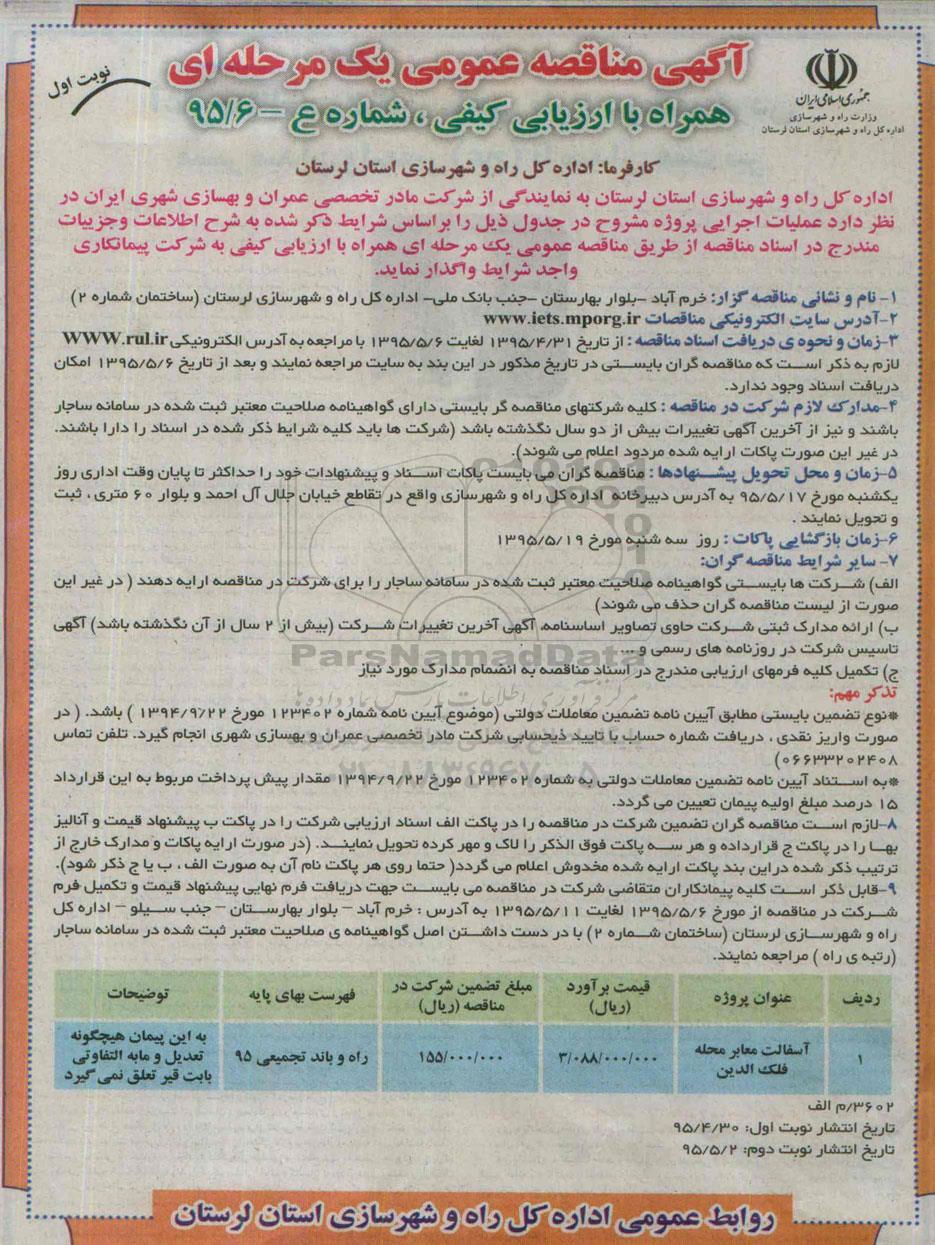 آگهی مناقصه عمومی یک مرحله ای
همراه با ارزیابی کیفی ، شماره ع – ۹۵/۶
نوبت اول
جمهوری اسلامی ایران
وزارت راه و شهرسازی
اداره کل راه و شهرسازی استان لرستان
کارفرما: اداره کل راه و شهرسازی استان لرستان
اداره کل راه و شهرسازی استان لرستان به نمایندگی از شرکت مادر تخصصی عمران و بهسازی شهری ایران در
نظر دارد عملیات اجرایی پروژه مشروح در جدول ذیل را براساس شرایط ذکر شده به شرح اطلاعات وجزییات
مندرج در اسناد مناقصه از طریق مناقصه عمومی یک مرحله ای همراه با ارزیابی کیفی به شرکت پیمانکاری
واجد شرایط واگذار نماید.
۱- نام و نشانی مناقصه گزار: خرم آباد –بلوار بهارستان –جنب بانک ملی– اداره کل راه و شهرسازی لرستان (ساختمان شماره ۲)
۲-آدرس سایت الکترونیکی مناقصات www.iets.mporg.ir
۳-زمان و نحوه ی دریافت اسناد مناقصه : از تاریخ ۱۳۹۵/۴/۳۱ لغایت ۱۳۹۵/۵/۶ با مراجعه به آدرس الکترونیکی WWW.rul.ir
لازم به ذکر است که مناقصه گران بایستی در تاریخ مذکور در این بند به سایت مراجعه نمایند و بعد از تاریخ ۱۳۹۵/۵/۶ امکان
دریافت اسناد وجود ندارد.
۴-مدارک لازم شرکت در مناقصه : کلیه شرکتهای مناقصه گر بایستی دارای گواهینامه صلاحیت معتبر ثبت شده در سامانه ساجار
باشند و نیز از آخرین آگهی تغییرات بیش از دو سال نگذشته باشد (شرکت ها باید کلیه شرایط ذکر شده در اسناد را دارا باشند.
در غیر این صورت پاکات ارایه شده مردود اعلام می شوند).
۵-زمان و محل تحویل پیشنهادها : مناقصه گران می بایست پاکات اسناد و پیشنهادات خود را حداکثر تا پایان وقت اداری روز
یکشنبه مورخ ۹۵/۵/۱۷ به آدرس دبیرخانه اداره کل راه و شهرسازی واقع در تقاطع خیابان جلال آل احمد و بلوار ۶۰ متری ، ثبت
و تحویل نمایند .
۶-زمان بازگشایی پاکات : روز سه شنبه مورخ ۱۳۹۵/۵/۱۹
۷- سایر شرایط مناقصه گران:
الف) شرکت ها بایستی گواهینامه صلاحیت معتبر ثبت شده در سامانه ساجار را برای شرکت در مناقصه ارایه دهند ( در غیر این
صورت از لیست مناقصه گران حذف می شوند)
ب) ارائه مدارک ثبتی شرکت حاوی تصاویر اساسنامه، آگهی آخرین تغییرات شرکت (بیش از ۲ سال از آن نگذشته باشد) آگهی
تاسیس شرکت در روزنامه های رسمی و ...
ParsNamadData
ج) تکمیل کلیه فرمهای ارزیابی مندرج در اسناد مناقصه به انضمام مدارک مورد نیاز
تذکر مهم:
*نوع تضمین بایستی مطابق آیین نامه تضمین معاملات دولتی (موضوع آیین نامه شماره ۱۲۳۴۰۲ مورخ ۱۳۹۴/۹/۲۲ ) باشد. ( در
صورت واریز نقدی ، دریافت شماره حساب با تایید ذیحسابی شرکت مادر تخصصی عمران و بهسازی شهری انجام گیرد. تلفن تماس
۰۶۶۳۳۲۰۲۴۰۸)
*به استناد آیین نامه تضمین معاملات دولتی به شماره ۱۲۳۴۰۲ مورخ ۱۳۹۴/۹/۲۲ مقدار پیش پرداخت مربوط به این قرارداد
۱۵ درصد مبلغ اولیه پیمان تعیین می گردد.
۸-لازم است مناقصه گران تضمین شرکت در مناقصه را در پاکت الف اسناد ارزیابی شرکت را در پاکت ب پیشنهاد قیمت و آنالیز
بها را در پاکت ج قرارداده و هر سه پاکت فوق الذکر را لاک و مهر کرده تحویل نمایند. (در صورت ارایه پاکات و مدارک خارج از
ترتیب ذکر شده دراین بند پاکت ارایه شده مخدوش اعلام می گردد( حتما روی هر پاکت نام آن به صورت الف ، ب یا ج ذکر شود).
۹-قابل ذکر است کلیه پیمانکاران متقاضی شرکت در مناقصه می بایست جهت دریافت فرم نهایی پیشنهاد قیمت و تکمیل فرم
شرکت در مناقصه از مورخ ۱۳۹۵/۵/۶ لغایت ۱۳۹۵/۵/۱۱ به آدرس : خرم آباد – بلوار بهارستان – جنب سیلو – اداره کل
راه و شهرسازی لرستان (ساختمان شماره ۲) با در دست داشتن اصل گواهینامه ی صلاحیت معتبر ثبت شده در سامانه ساجار
(رتبه ی راه ) مراجعه نمایند.
ردیف عنوان پروژه قیمت برآورد (ریال) مبلغ تضمین شرکت در مناقصه (ریال) فهرست بهای پایه توضیحات
۱ آسفالت معابر محله فلک الدین ۳/۰۸۸/۰۰۰/۰۰۰ ۱۵۵/۰۰۰/۰۰۰ راه و باند تجمیعی ۹۵ به این پیمان هیچگونه تعدیل و مابه التفاوتی بابت قیر تعلق نمی گیرد
۳۶۰۲/م الف
تاریخ انتشار نوبت اول: ۹۵/۴/۳۰
تاریخ انتشار نوبت دوم: ۹۵/۵/۲
روابط عمومی اداره کل راه و شهرسازی استان لرستان